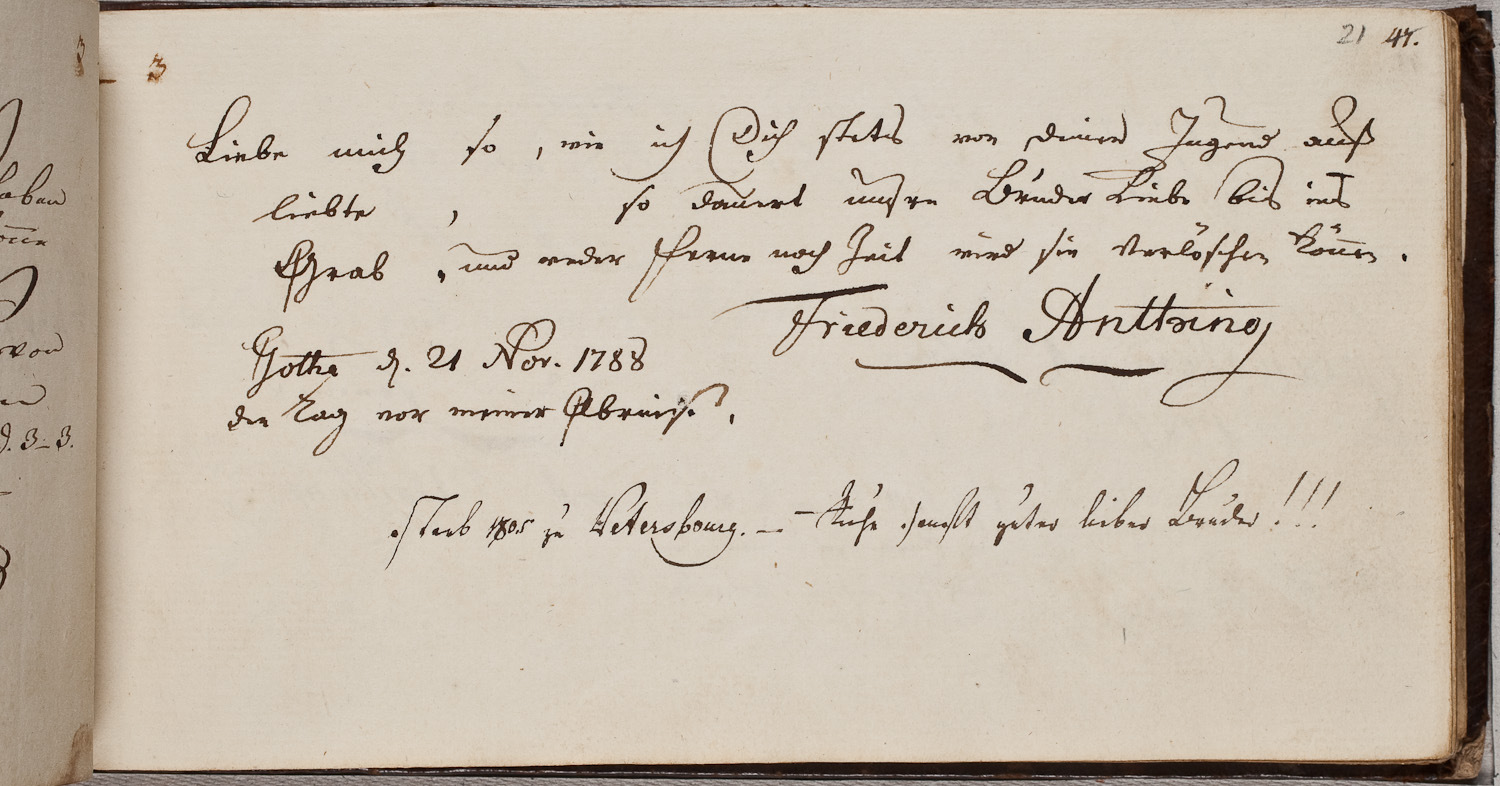 21 47.
3
Liebe mich so, wie ich Dich stets von deiner Jugend auf
liebte, so dauert unsre Bruder Liebe bis ins
Grab, und weder Ferne noch Zeit wird sie verlöschen können.
Friederich Antthing
Gotha d. 21 Nov. 1788
den Tag vor meiner Abreise.
starb 1805 zu Petersbourg. — Ruhe sanft guter lieber Bruder!!!
3
haben
von
d. 3–3.